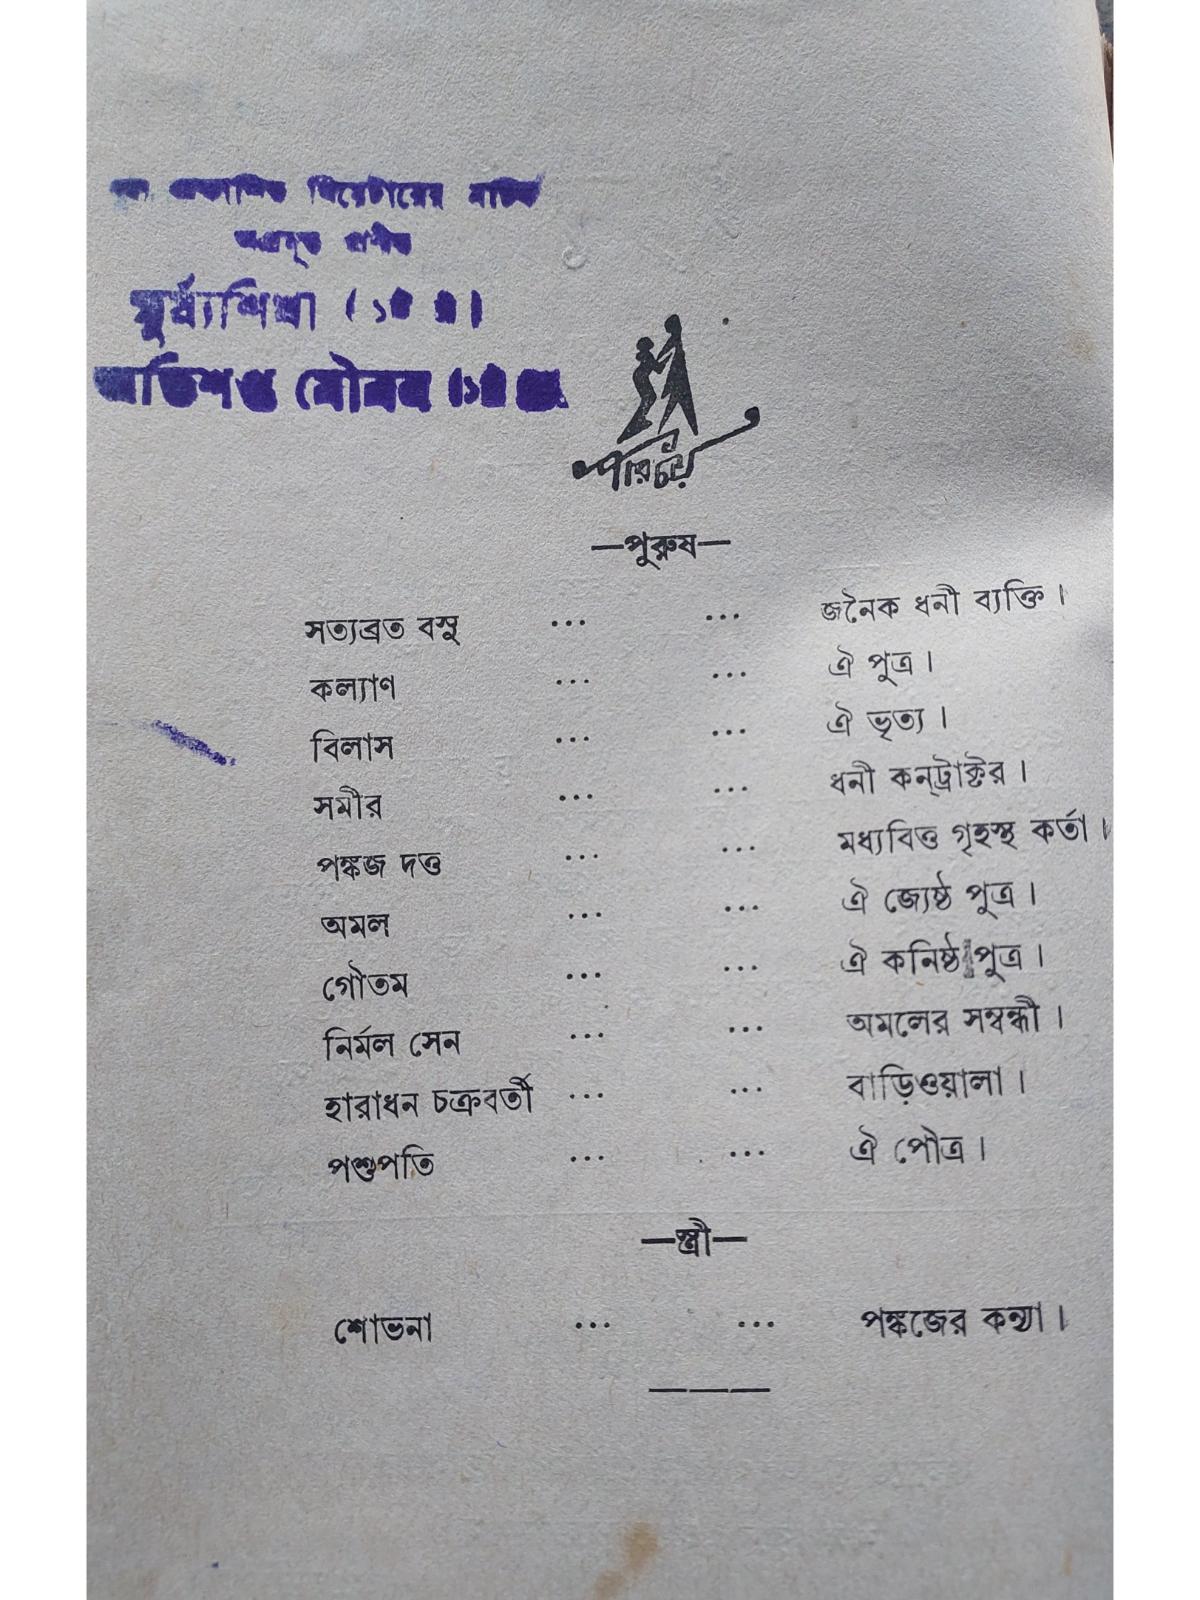 থিয়েটারের নাটক
সূর্য্যশিখা
অভিশপ্ত যৌবন
পরিচয়
—পুরুষ—
সত্যব্রত বসু ... ... জনৈক ধনী ব্যক্তি।
কল্যাণ ... ... ঐ পুত্র।
বিলাস ... ... ঐ ভৃত্য।
সমীর ... ... ধনী কন্‌ট্রাক্টর।
পঙ্কজ দত্ত ... ... মধ্যবিত্ত গৃহস্থ কর্তা।
অমল ... ... ঐ জ্যেষ্ঠ পুত্র।
গৌতম ... ... ঐ কনিষ্ঠ পুত্র।
নির্মল সেন ... ... অমলের সম্বন্ধী।
হারাধন চক্রবর্তী ... ... বাড়িওয়ালা।
পশুপতি ... ... ঐ পৌত্র।
—স্ত্রী—
শোভনা ... ... পঙ্কজের কন্যা।